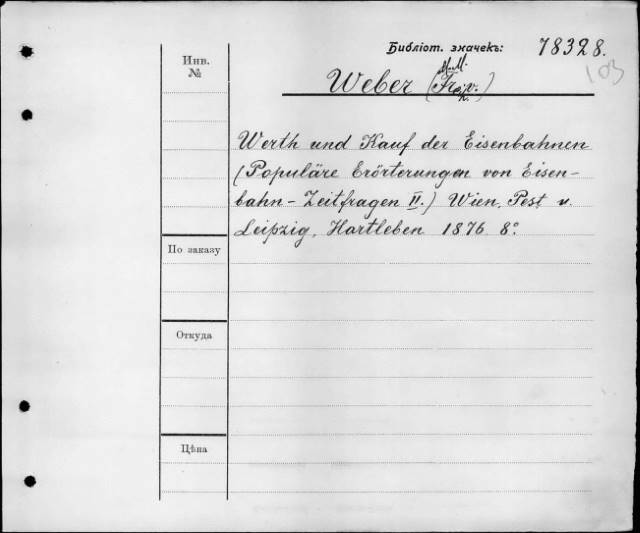 Библіот. значекъ: 78328.
103
Инв.
№
M. M.
Weber (Fr. v.)
Werth und Kauf der Eisenbahnen
(Populäre Erörterungen von Eisen-
bahn-Zeitfragen II.) Wien, Pest u.
Leipzig, Hartleben 1876. 8°.
По заказу
Откуда
Цѣна